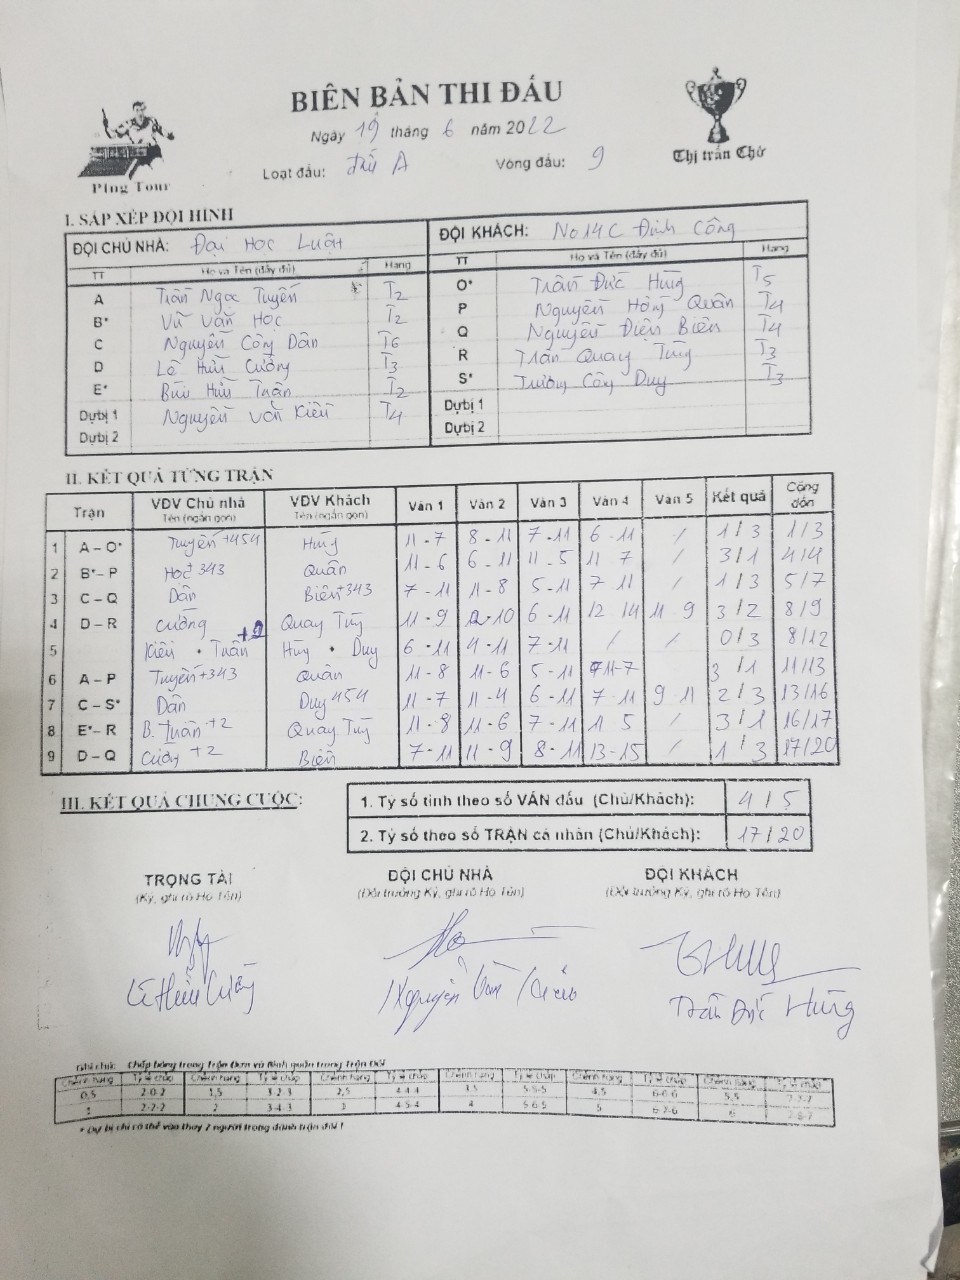 BIÊN BẢN THI ĐẤU
Ngày 19 tháng 6 năm 2022
Loạt đấu: A Vòng đấu: 9
Ping Tour
Thị trấn Chờ
I. SẮP XẾP ĐỘI HÌNH
ĐỘI CHỦ NHÀ: Đại Học Luật ĐỘI KHÁCH: No14C Định Công
TT Họ và Tên (đầy đủ) Hạng TT Họ và Tên (đầy đủ) Hạng
A Trần Ngọc Tuyến T2 O* Trần Đức Hùng T5
B* Vũ Văn Học T2 P Nguyễn Hồng Quân T4
C Nguyễn Công Dân T6 Q Nguyễn Điện Biên T4
D Lê Hữu Cường T3 R Trần Quay Tùng T3
E* Bùi Hữu Tuân T2 S* Trương Công Duy T3
Dự bị 1 Nguyễn Văn Kiên T4 Dự bị 1
Dự bị 2 Dự bị 2
II. KẾT QUẢ TỪNG TRẬN
Trận VĐV Chủ nhà Tên (ngắn gọn) VĐV Khách Tên (ngắn gọn) Ván 1 Ván 2 Ván 3 Ván 4 Ván 5 Kết quả Cộng dồn
1 A – O* Tuyến +454 Hùng 11 - 7 8 - 11 7 - 11 6 - 11 / 1/3 1/3
2 B* – P Học +343 Quân 11 - 6 6 - 11 11 - 5 11 7 / 3/1 4/4
3 C – Q Dân Biên +343 7 - 11 11 - 8 5 - 11 7 11 / 1/3 5/7
4 D – R Cường Quay Tùng 11 - 9 12-10 6 - 11 12 14 11 9 3/2 8/9
5 Kiên • Tuân +2 Hùng • Duy 6 - 11 4 - 11 7 - 11 / / 0/3 8/12
6 A – P Tuyến +343 Quân 11 - 8 11 - 6 5 - 11 11-7 3/1 11/13
7 C – S* Dân Duy 454 11 - 7 11 - 4 6 - 11 7 - 11 9 11 2/3 13/16
8 E* – R B. Tuân +2 Quay Tùng 11 - 8 11 - 6 7 - 11 11 5 / 3/1 16/17
9 D – Q Cường +2 Biên 7 - 11 11 - 9 8 - 11 13-15 / 1/3 17/20
III. KẾT QUẢ CHUNG CUỘC:
1. Tỷ số tính theo số VÁN đấu (Chủ/Khách): 4/5
2. Tỷ số theo số TRẬN cá nhân (Chủ/Khách): 17/20
TRỌNG TÀI ĐỘI CHỦ NHÀ ĐỘI KHÁCH
(Ký, ghi rõ Họ Tên) (Đội trưởng Ký, ghi rõ Họ Tên) (Đội trưởng Ký, ghi rõ Họ Tên)
Lê Hữu Cường Nguyễn Văn Kiên Trần Đức Hùng
Ghi chú: Chấp bóng trong trận Đơn và Bình quân trong trận Đôi
Chênh hạng Tỷ lệ chấp Chênh hạng Tỷ lệ chấp Chênh hạng Tỷ lệ chấp Chênh hạng Tỷ lệ chấp Chênh hạng Tỷ lệ chấp Chênh hạng Tỷ lệ chấp
0,5 2-0-2 1,5 3-2-3 2,5 4-4-4 3,5 5-5-5 4,5 6-6-6 5,5 7-7-7
1 2-2-2 2 3-4-3 3 4-5-4 4 5-6-5 5 6-7-6 6
* Dự bị chỉ có thể vào thay 2 người trong đánh trận đôi !